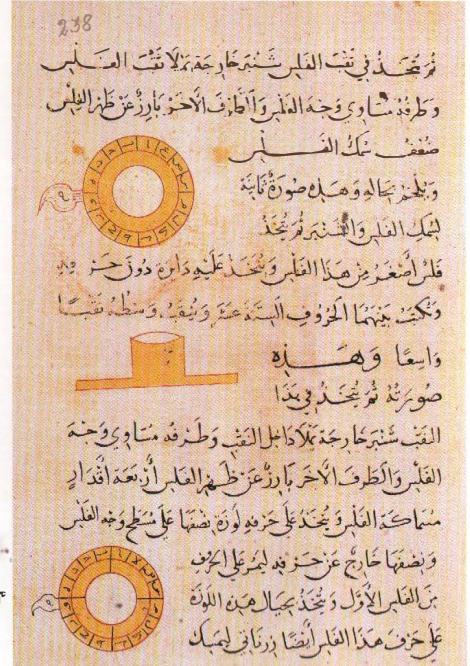 238
ثم يتخذ في ثقب الفلس شنبر خارجة يملا ثقب الفلس
وطرفه مساوي وجه الفلس والطرف الاخر بارز عن ظهر الفلس
ضعف سمك الفلس
ويلحم بحاله وهذه صورة
لسمك الفلس والشنبر ثم يتخذ
فلس أصغر من هذا الفلس ويتخذ عليه دايرة دون حرفه
ويكتب بينهما الحروف الستة عشر ويثقب وسطه ثقبا
واسعا وهذه
صورته ثم يتخذ في هذا
الثقب شنبر خارجة يملا داخل الثقب وطرفه مساوي وجه
الفلس والطرف الاخر بارز عن ظهر الفلس أربعة أقدار
سماكة الفلس ويتخذ على حرفه لوزة نصفها على مسطح وجه الفلس
ونصفها خارج عن حرفه ليمر على الحرف
من الفلس الأول ويتخذ بحيال هذه اللوزة
على حرف هذا الفلس أيضا ليمسك